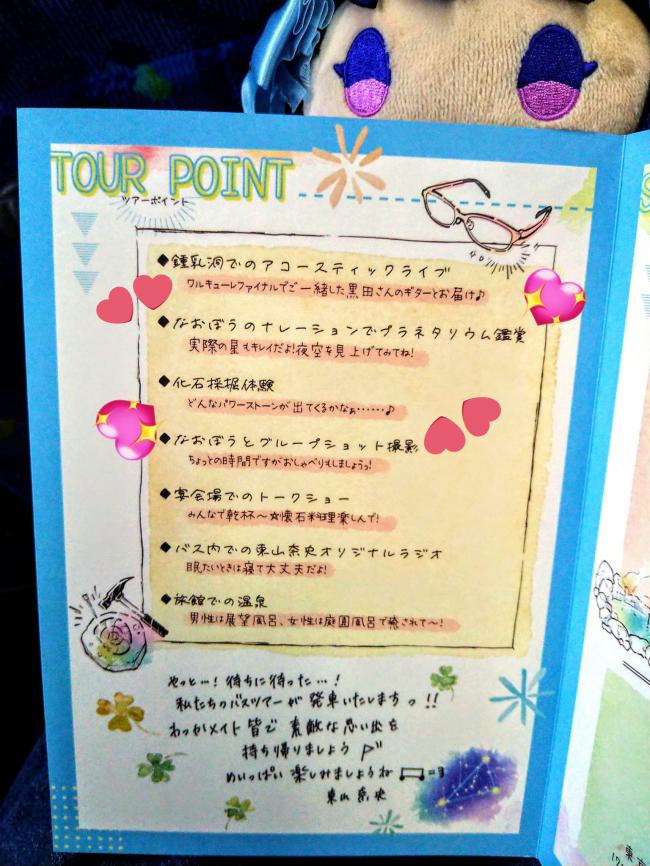 TOUR POINT
ツアーポイント
◆鍾乳洞でのアコースティックライブ
ワルキューレファイナルでご一緒した黒田さんのギターとお届け♪
◆なおぼうのナレーションでプラネタリウム鑑賞
実際の星もキレイだよ!夜空を見上げてみてね!
◆化石採掘体験
どんなパワーストーンが出てくるかなぁ……♪
◆なおぼうとグループショット撮影
ちょっとの時間ですがおしゃべりもしましょうっ!
◆宴会場でのトークショー
みんなで乾杯〜☆懐石料理楽しんで!
◆バス内での東山奈央オリジナルラジオ
眠たいときは寝て大丈夫だよ!
◆旅館での温泉
男性は展望風呂、女性は庭園風呂で癒されて〜!
やっと…!待ちに待った…!
私たちのバスツアーが発車いたしますっ!!
わっかメイト皆で素敵な思い出を
持ち帰りましょう
めいっぱい楽しみましょうね
東山奈央